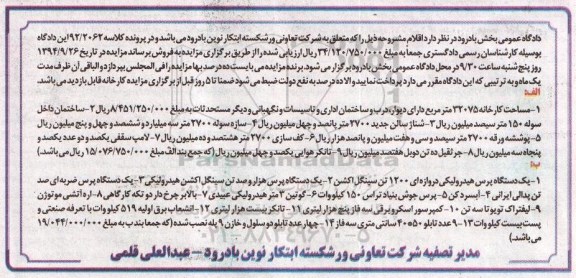 دادگاه عمومی بخش بادرود در نظر دارد اقلام مشروحه ذیل را که متعلق به شرکت تعاونی ورشکسته ابتکار نوین بادرود می باشد و در پرونده کلاسه ۹۲/۲۰۶۲ این دادگاه
بوسیله کارشناسان رسمی دادگستری جمعاً به مبلغ ۳۴/۱۲۰/۷۵۰/۰۰۰ ریال ارزیابی شده را از طریق برگزاری مزایده به فروش برساند مزایده در تاریخ ۱۳۹۴/۹/۲۶
روز پنج شنبه ساعت ۹/۳۰ در محل دادگاه عمومی بخش بادرود برگزار می شود. برنده مزایده می بایست ده درصد بهاء مزایده را فی المجلس بپردازد و الباقی آن ظرف مدت
یک ماه و به ترتیبی که این دادگاه مقرر می دارد پرداخت نمایید والا ده درصد به نفع دولت ضبط می شود ضمناً تا ۵ روز قبل از برگزاری مزایده کارخانه قابل بازدید می باشد.
الف:
۱- مساحت کارخانه ۳۲۰۷۵ متر مربع دارای دیوار، درب و ساختمان اداری و تاسیسات و نگهبانی و دیگر مستحدثات به مبلغ ۸/۴۵۱/۲۵۰/۰۰۰ ریال ۲- ساختمان داخل
سوله ۱۵۰ متر سیصد میلیون ریال ۳- شناژ سالن جدید ۲۷۰۰ متر پانصد و چهل میلیون ریال ۴- سازه سوله ۲۷۰۰ متر سه میلیارد و ششصد و چهل و پنج میلیون ریال
۵- پوشش ورقه ۲۷۰۰ متر سیصد و سی و هفت میلیون و پانصد هزار ریال ۶- کف سازی ۲۷۰۰ متر هشتصد و ده میلیون ریال ۷- لامپ سقفی یکصد و دو عدد یکصد و
پنجاه سه میلیون ریال ۸- جرثقیل ده تن دوپل هفتصد میلیون ریال ۹- تانکر هوایی یکصد و چهل میلیون ریال (که جمع بند الف مبلغ ۱۵/۰۷۶/۷۵۰/۰۰۰ ریال می باشد)
ب:
۱- یک دستگاه پرس هیدرولیکی دروازه ای ۱۲۰۰ تن سینگل اکشن ۲- یک دستگاه پرس هزار و صد تن سینگل اکشن هیدرولیکی ۳- یک دستگاه پرس ضربه ای صد
تن پدالی ایرانی ۴- آبسرد کن ۵- پرس جوش بنیاد تراس ۱۵۰ کیلووات ۶- گیوتین ۳ متر هیدرولیکی عبیدی ۷- بالابر چرخ دار دو تکه کارگاهی ۸- اره آتشی موتوژن
۹- لیفتراک تویوتا سه تن ۱۰- کمپرسور اسکرو برقی سه فاز پنج هزار لیتری ۱۱- تانکر بیست هزار لیتری ۱۲- انشعاب برق اولیه ۵۱۹ کیلووات با تعرفه صنعتی و
پست بیست کیلووات ۱۳- ۹ عدد تابلو ۵۰×۴۰ سانتی متری سه فاز ۱۴- چهار عدد تابلو دو سلول و خازن ۹ پله نصب شده (که جمعا بند ب به مبلغ ۱۹/۰۴۴/۰۰۰/۰۰۰
می باشد.)
مدیر تصفیه شرکت تعاونی ورشکسته ابتکار نوین بادرود - عبدالعلی قلمی